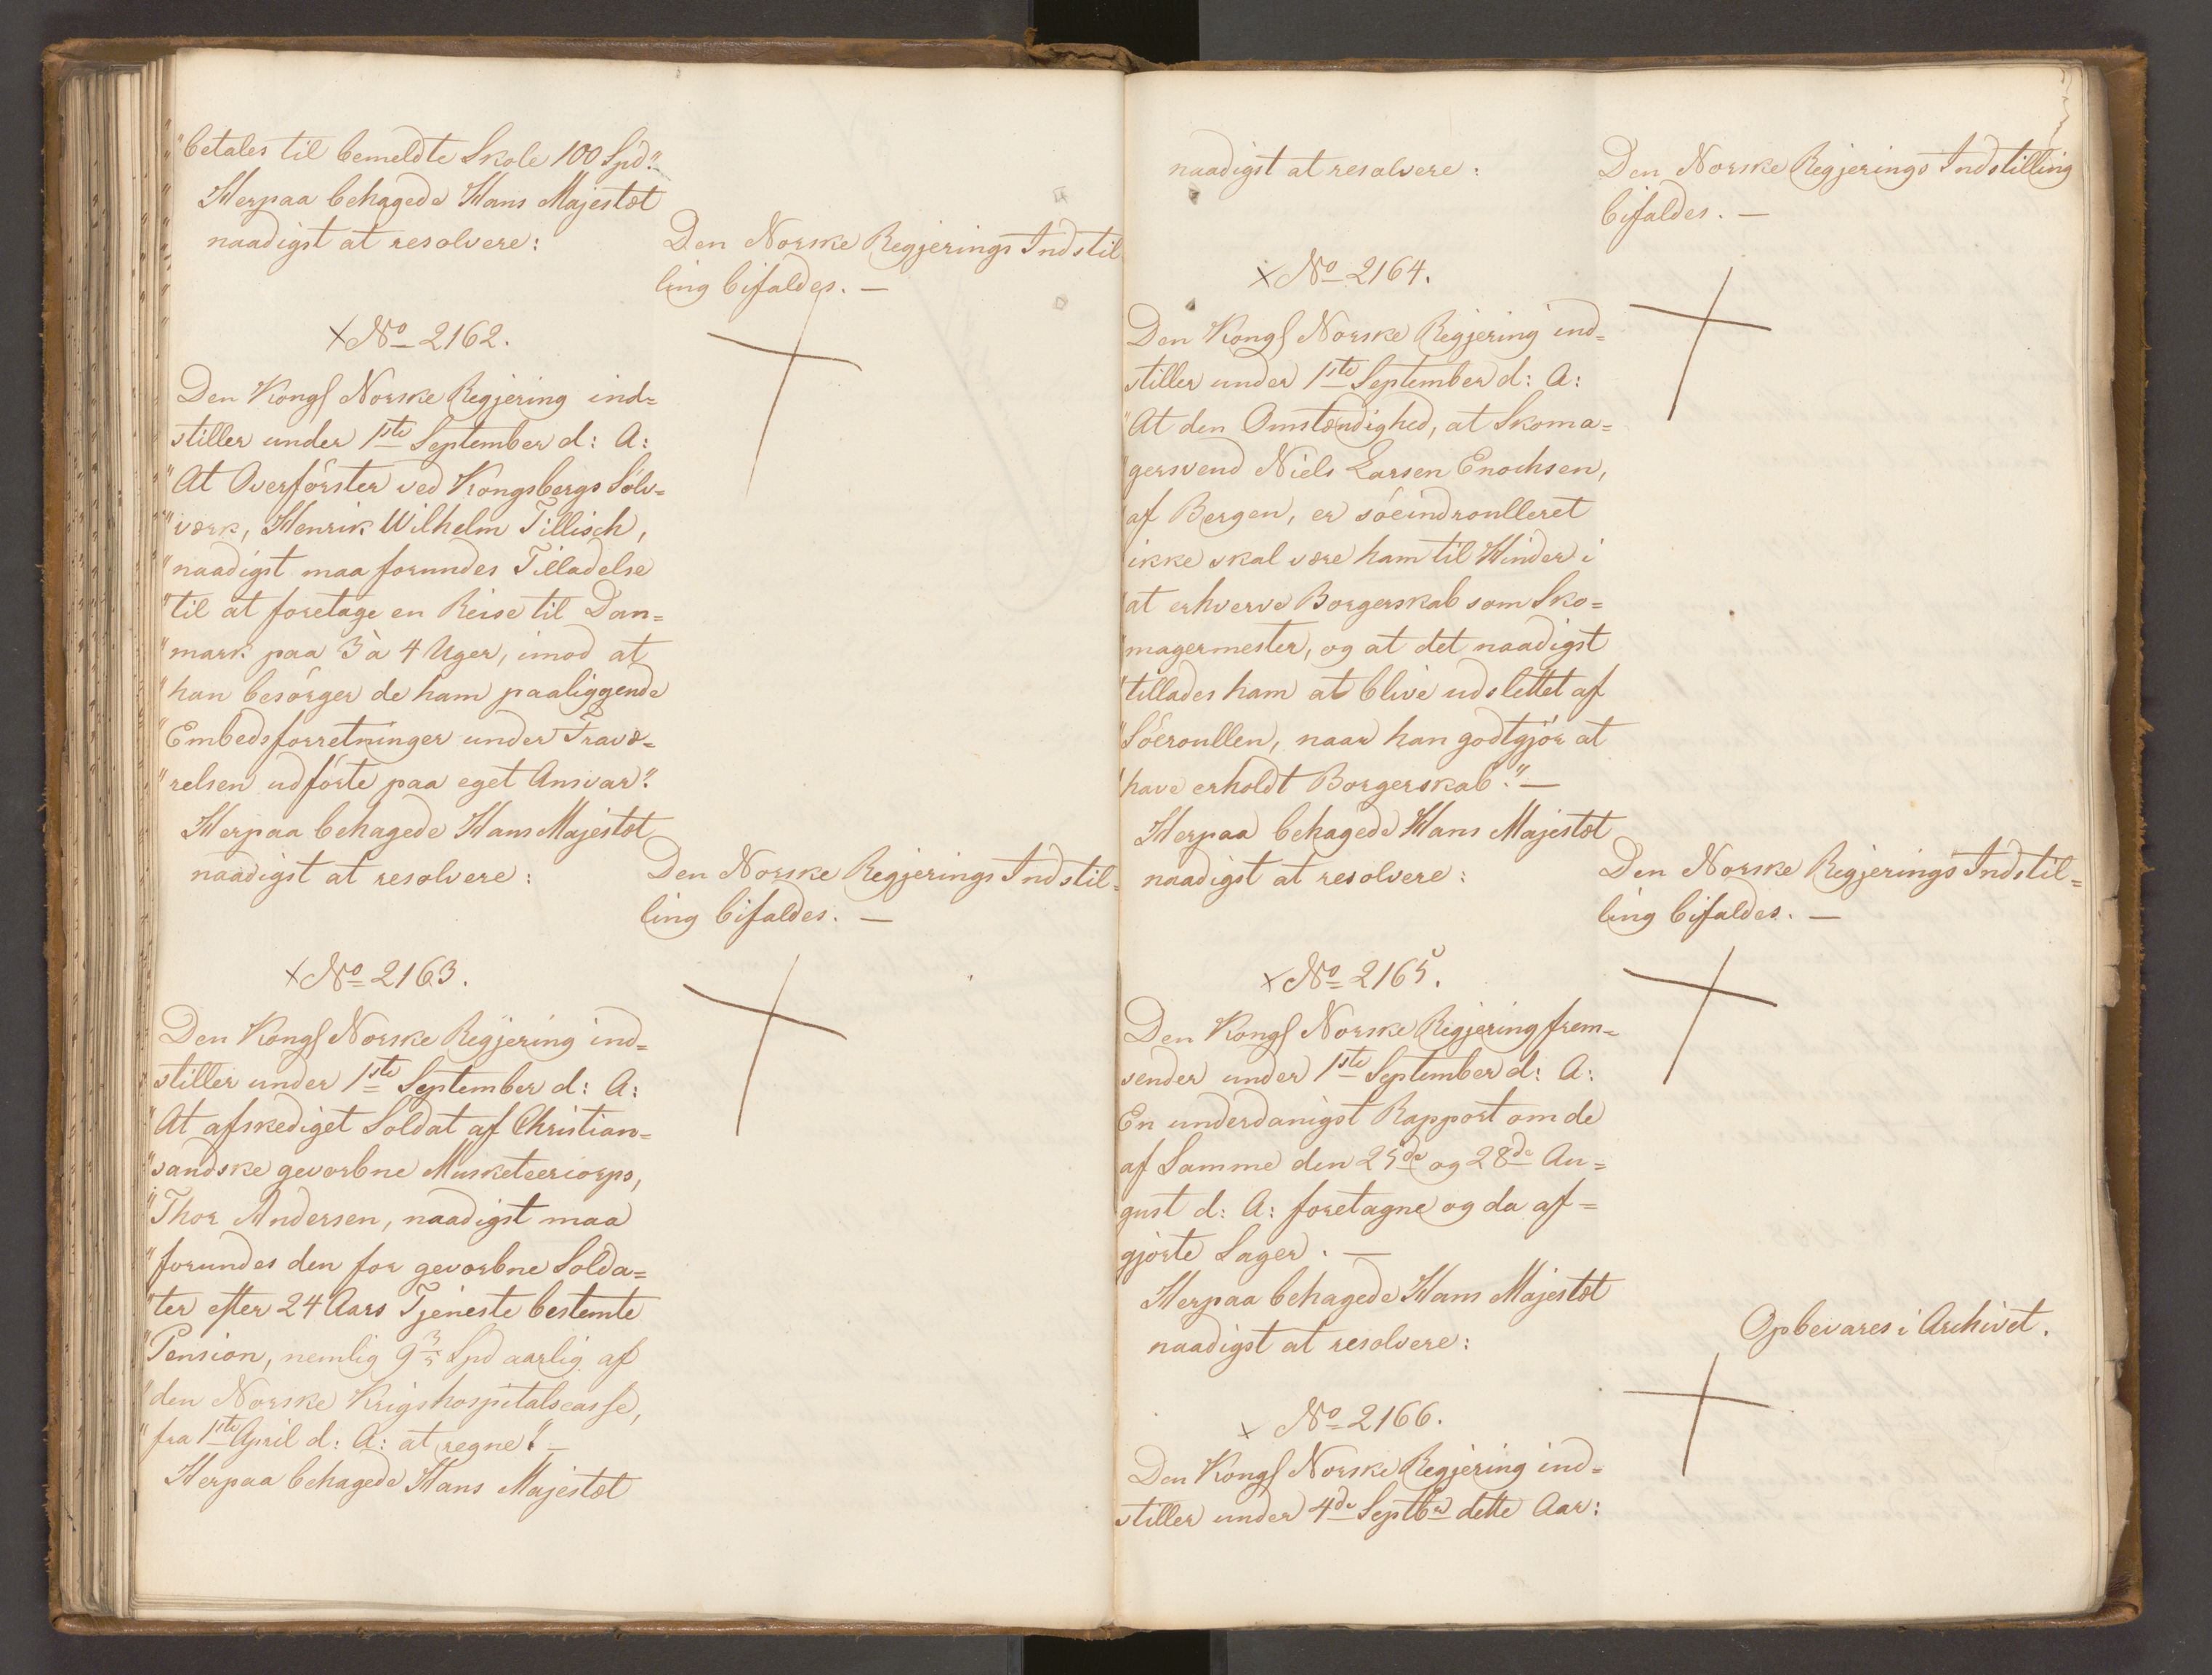 "betales til bemeldte Skole 100 Spd".
Herpaa behagede Hans Majestæt
naadigst at resolvere:
Den Norske Regjerings Indstil
ling bifaldes. —
× No 2162.
Den Kongl Norske Regjering ind=
stiller under 1ste September d: A:
"At Overförster ved Kongsbergs Sölv=
"værk, Henrik Wilhelm Tillisch,
"naadigst maa forundes Tilladelse
"til at foretage en Reise til Dan=
"mark paa 3 à 4 Uger, imod at
"han besörger de ham paaliggende
"Embedsforretninger under Fravæ=
"relsen udförte paa eget Ansvar".
Herpaa behagede Hans Majestæt
naadigst at resolvere:
Den Norske Regjerings Indstil=
ling bifaldes. —
× No 2163.
Den Kongl Norske Regjering ind=
stiller under 1ste September d: A:
"At afskediget Soldat af Christian=
"sandske gevorbne Musketeercorps,
"Thor Andersen, naadigst maa
"forundes den for gevorbne Solda=
"ter efter 24 Aars Tjeneste bestemte
"Pension, nemlig 9 3/5 Spd aarlig af
"den Norske Krigshospitalscasse,
"fra 1ste April d: A: at regne". —
Herpaa behagede Hans Majestæt
naadigst at resolvere:
Den Norske Regjerings Indstilling
bifaldes. —
× No 2164.
Den Kongl Norske Regjering ind=
stiller under 1ste September d: A:
"At den Omstændighed, at Skoma=
"gersvend Niels Larsen Enochsen,
"af Bergen, er söeindroulleret
"ikke skal være ham til Hinder i
"at erhverve Borgerskab som Sko=
"magermester, og at det naadigst
"tillades ham at blive udslettet af
"Söeroullen, naar han godtgjör at
"have erholdt Borgerskab". —
Herpaa behagede Hans Majestæt
naadigst at resolvere:
Den Norske Regjerings Indstil=
ling bifaldes. —
× No 2165.
Den Kongl Norske Regjering frem=
sender under 1ste September d: A:
En underdanigst Rapport om de
af Samme den 25de og 28de Au=
gust d: A: foretagne og da af=
gjorte Sager. —
Herpaa behagede Hans Majestæt
naadigst at resolvere:
Opbevares i Archivet.
× No 2166.
Den Kongl Norske Regjering ind=
stiller under 4de Septbr dette Aar: